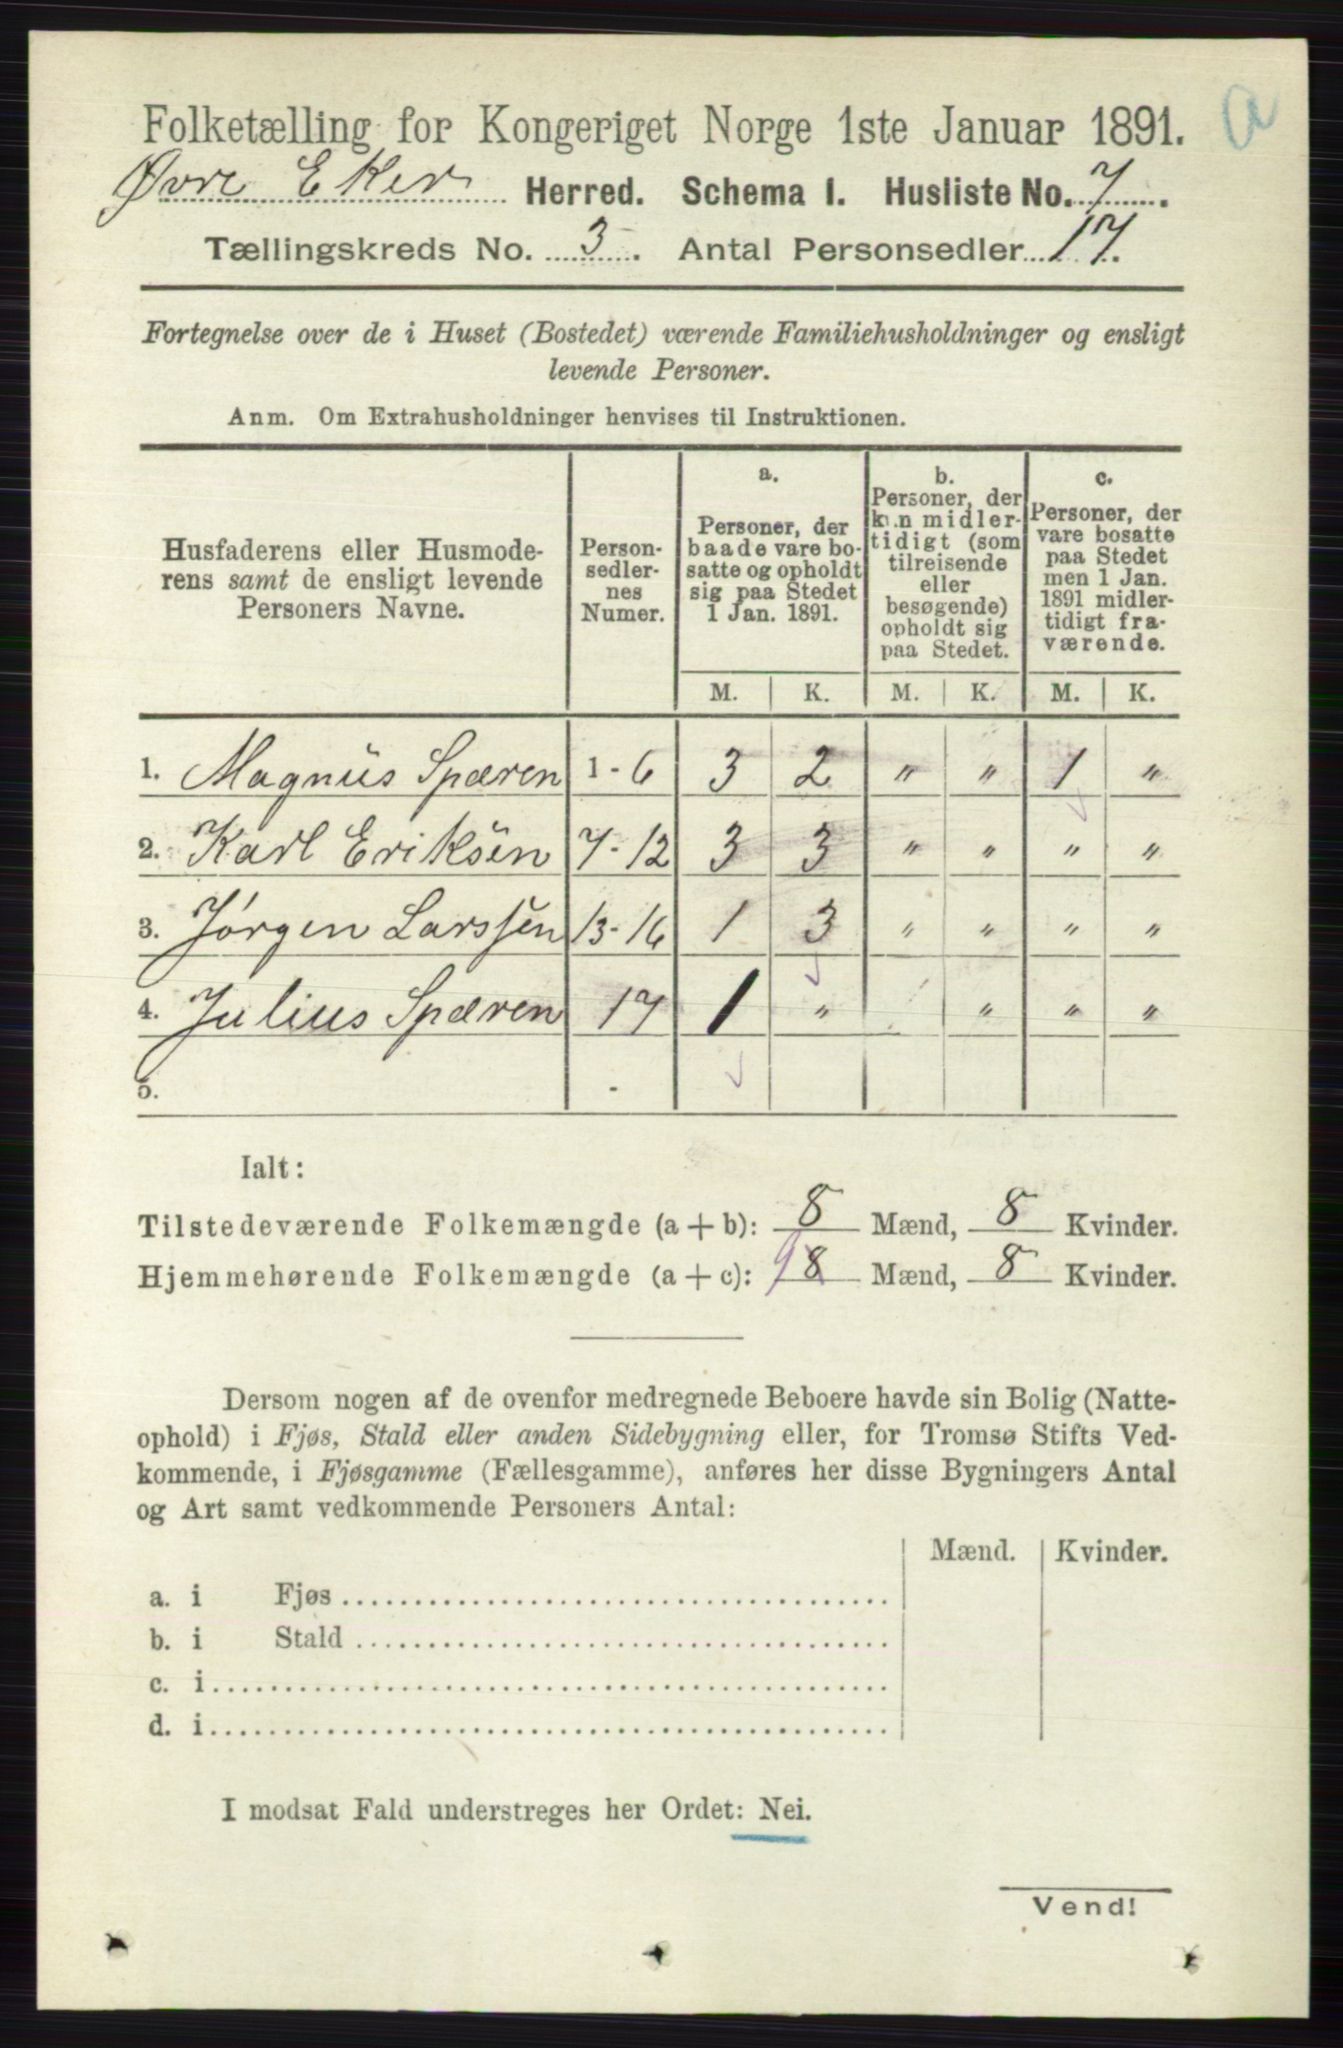 a
Folketælling for Kongeriget Norge 1ste Januar 1891.
Øvre Eker Herred. Schema I. Husliste No. 7.
Tællingskreds No. 3. Antal Personsedler 17.
Fortegnelse over de i Huset (Bostedet) værende Familiehusholdninger og ensligt
levende Personer.
Anm. Om Extrahusholdninger henvises til Instruktionen.
Husfaderens eller Husmode-
rens samt de ensligt levende
Personers Navne.
Person-
sedler-
nes
Numer.
a.
Personer, der
baade vare bo-
satte og opholdt
sig paa Stedet
1 Jan. 1891.
b.
Personer, der
kun midler-
tidigt (som
tilreisende
eller
besøgende)
opholdt sig
paa Stedet.
c.
Personer, der
vare bosatte
paa Stedet
men 1 Jan.
1891 midler-
tidigt fra-
værende.
M. K. M. K. M. K.
1. Magnus Spæren 1-6 3 2 " " 1 "
2. Karl Eriksen 7-12 3 3 " " " "
3. Jørgen Larssen 13-16 1 3 " " " "
4. Julius Spæren 17 1 " " " "
5. -
Ialt:
Tilstedeværende Folkemængde (a + b): 8 Mænd, 8 Kvinder.
Hjemmehørende Folkemængde (a + c): 9 8 Mænd, 8 Kvinder.
Dersom nogen af de ovenfor medregnede Beboere havde sin Bolig (Natte-
ophold) i Fjøs, Stald eller anden Sidebygning eller, for Tromsø Stifts Ved-
kommende, i Fjøsgamme (Fællesgamme), anføres her disse Bygningers Antal
og Art samt vedkommende Personers Antal:
Mænd. Kvinder.
a. i Fjøs
b. i Stald
c. i
d. i
I modsat Fald understreges her Ordet: Nei.
Vend!